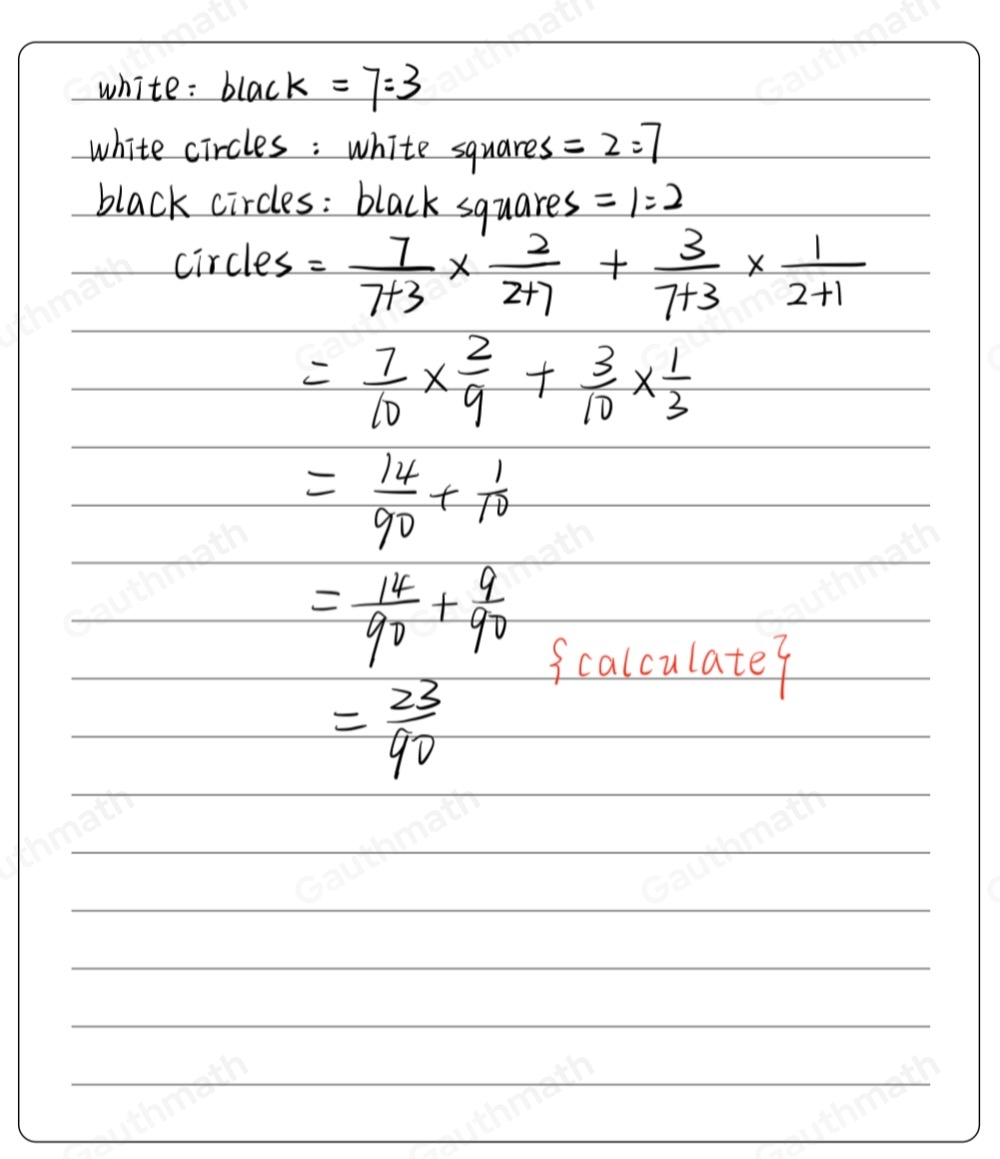 white: black = 7:3
white circles : white squares = 2:7
black circles: black squares = 1:2
circles = 7/(7+3) × 2/(2+7) + 3/(7+3) × 1/(2+1)
= 7/10 × 2/9 + 3/10 × 1/3
= 14/90 + 1/10
= 14/90 + 9/90
{calculate}
= 23/90
Gauthmath